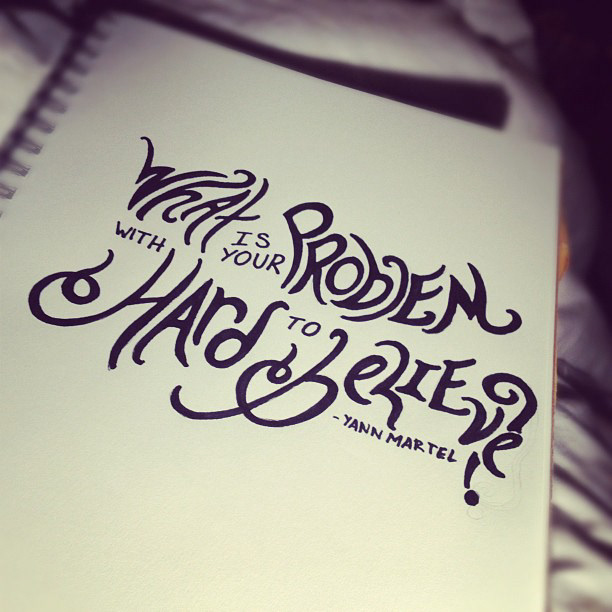 What IS YOUR PROBLEM
WITH HArd TO BELIEVe?!
-YANN MARTEL